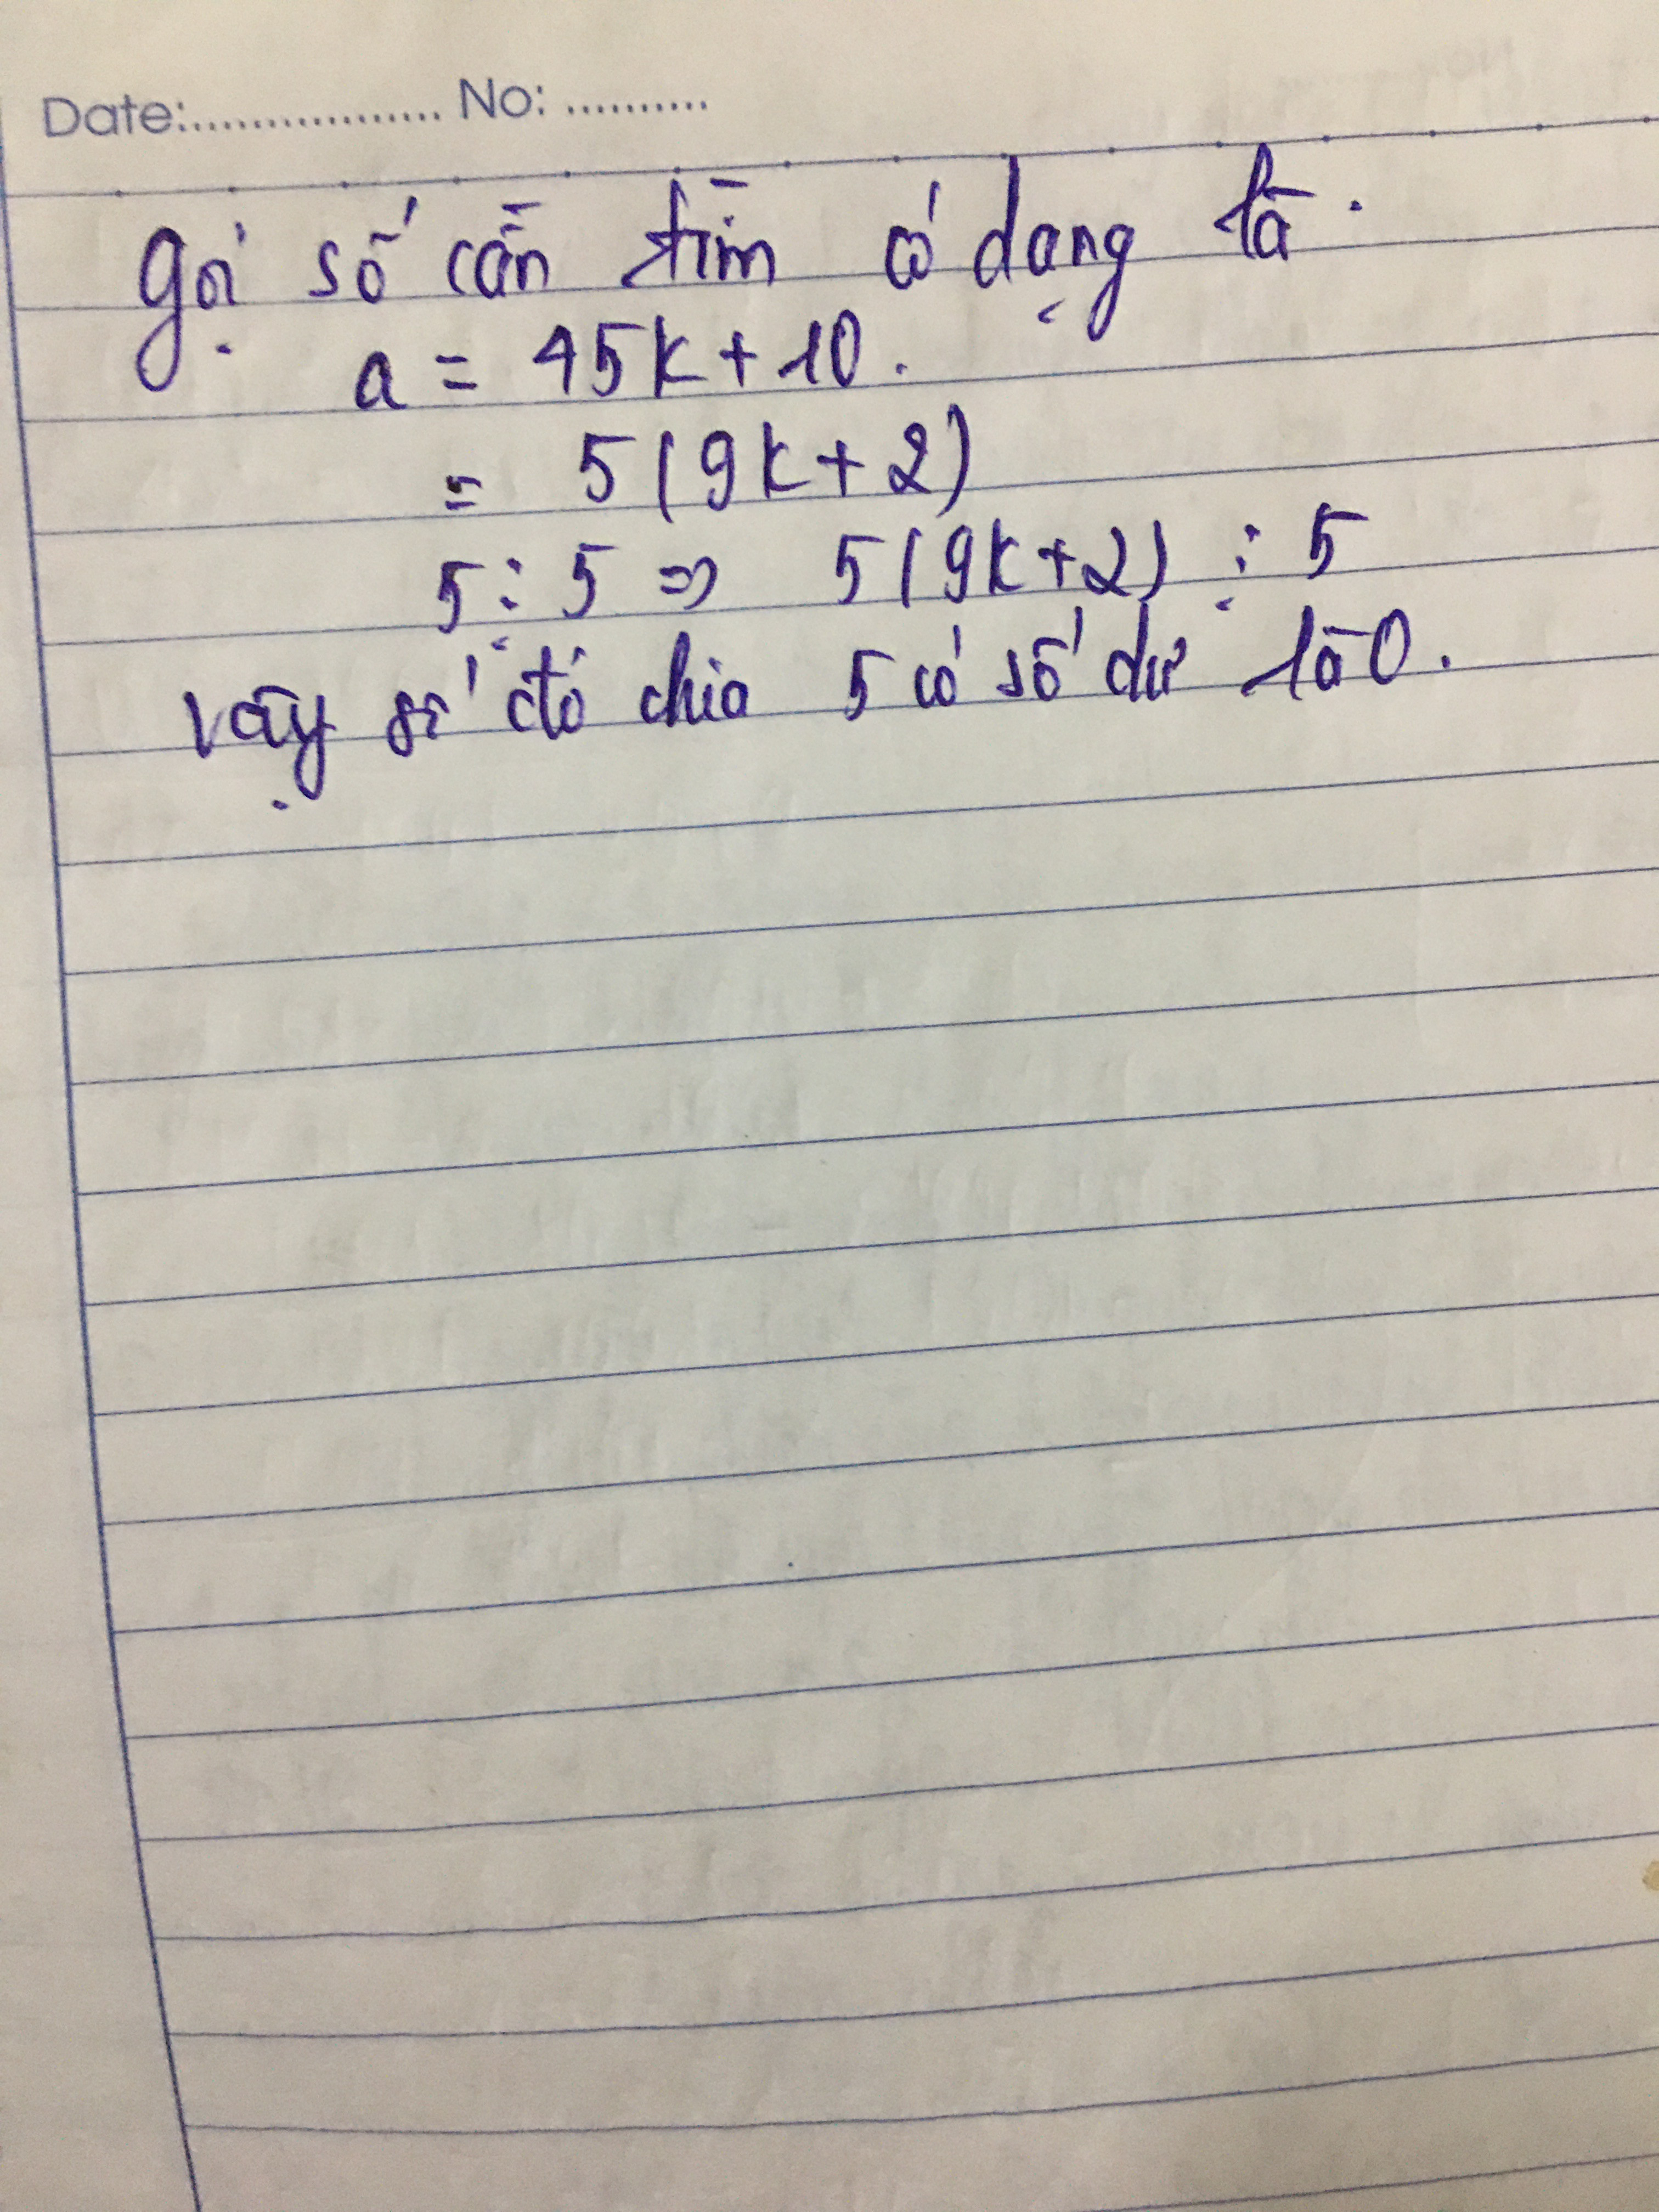 Date:.................. No: ..........
Gọi số cần tìm có dạng là.
a = 45k + 10.
= 5(9k + 2)
5 ⋮ 5 => 5(9k + 2) ⋮ 5
Vậy số đó chia 5 có số dư là 0.